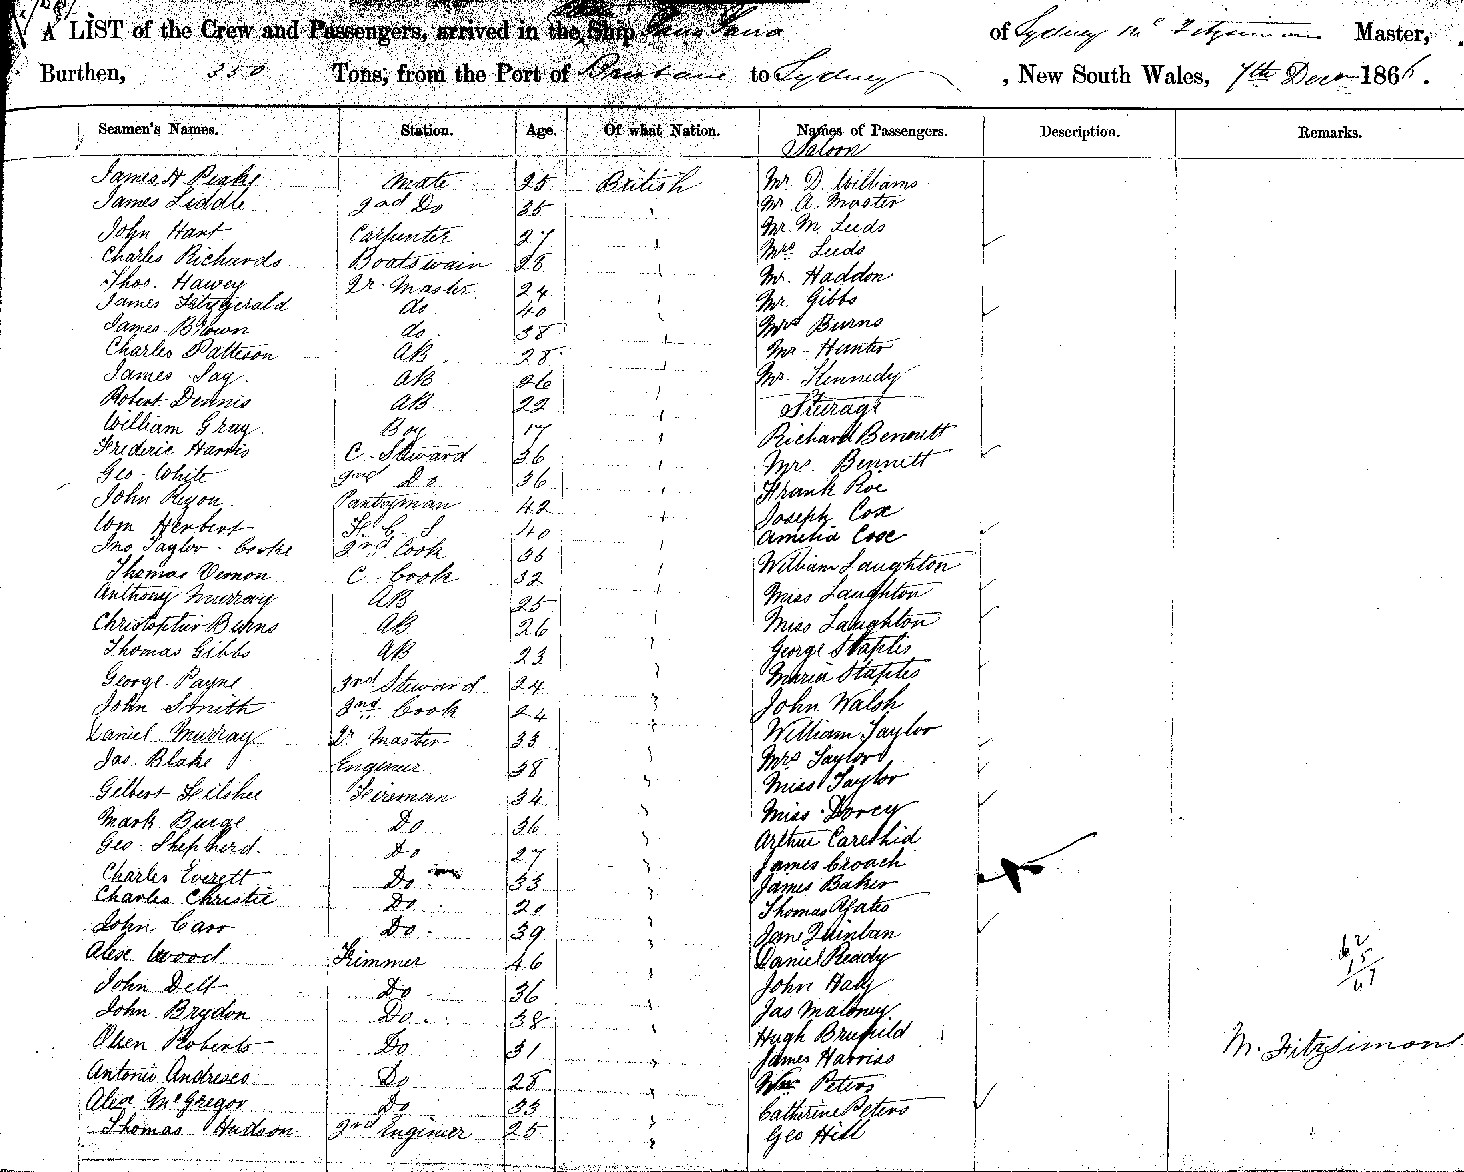 A LIST of the Crew and Passengers, arrived in the Ship of Sydney Mc Fitzsimons Master,
Burthen, 350 Tons, from the Port of Brisbane to Sydney, New South Wales, 7th Decr 1866.
Seamen's Names. Station. Age. Of what Nation. Names of Passengers. Description. Remarks.
Saloon
James H Peake Mate 25 British Mr D. Williams
James Liddle 2nd Do 35 " Mr A. Master
John Hart Carpenter 27 " Mr M. Leeds
Charles Richards Boatswain 28 " Mrs Leeds
Thos. Hawey Qr. Master 24 " Mr. Haddon
James Fitzgerald do 40 " Mr. Gibbs
James Brown do 38 " Mrs Burns
Charles Patteson AB 28 " Mr Hunter
James Jay AB 26 " Mr. Kennedy
Robert Dennis AB 22 " Steerage
William Gray Boy 17 " Richard Bennett
Frederic Harris C. Steward 36 " Mrs. Bennett
Geo. White 2nd Do 36 " Frank Roe
John Ryon Pantryman 42 " Joseph Cox
Wm Herbert F. C. S 40 " Amelia Cox
Jno Taylor Cooke 3rd Cook 36 " William Laughton
Thomas Vernon C. Cook 32 " Miss Laughton
Anthony Murray AB 25 " Miss Laughton
Christopher Burns AB 26 " George Staples
Thomas Gibbs AB 23 " Maria Staples
George Payne 3rd Steward 24 " John Walsh
John Smith 2nd Cook 24 " William Taylor
Daniel Murray Qr Master 33 " Mrs Taylor
Jas. Blake Engineer 38 " Miss Taylor
Gilbert Fireman 34 " Miss Dorcy
Mark Burge Do 36 " Arthur
Geo. Shepherd Do 27 " James Croach
Charles Everett Do 33 " James Baker
Charles Christie Do 20 " Thomas Yates
John Carr Do 39 " Jane Quinlan
Alex Wood Trimmer 46 " Daniel Ready
John Delt Do 36 " John Haly
John Brydon Do 38 " Jas Maloney
Owen Roberts Do 31 " Hugh
James Harriss
Antonio Andreseo Do 28 " Wm Peters
Alex McGregor Do 33 " Catherine Peters
Thomas Hudson 3rd Engineer 25 " Geo Hill
M. Fitzsimons